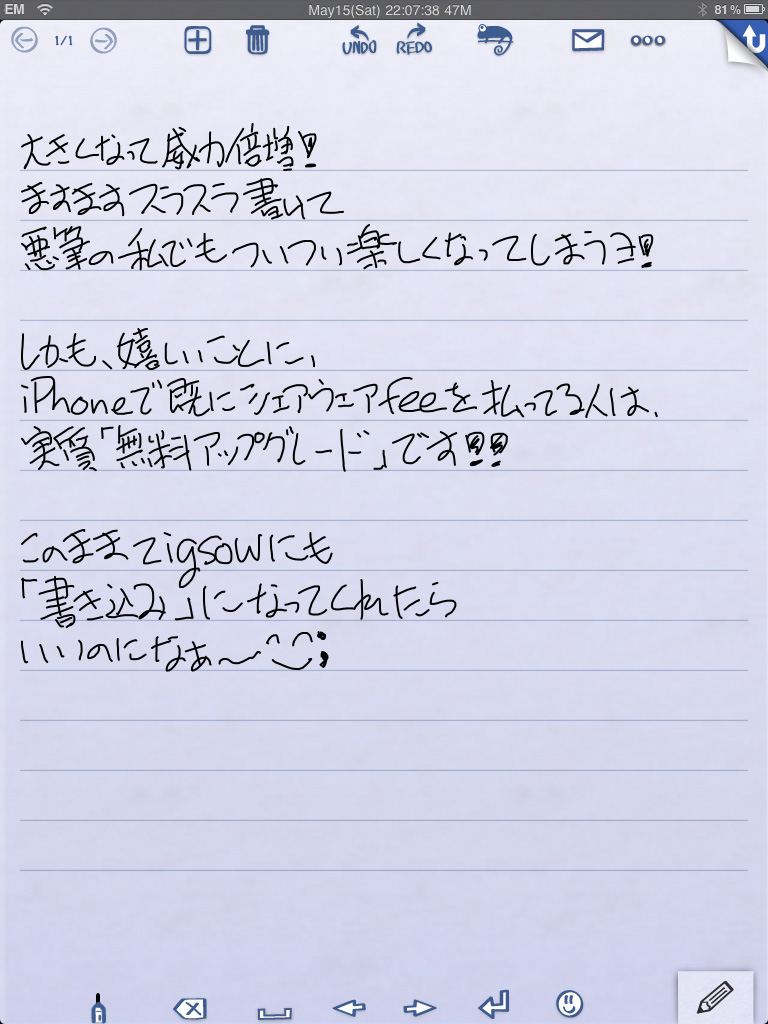 EM May15(Sat) 22:07:38 47M 81%
1/1 UNDO REDO
大きくなって威力倍増!!
ますますスラスラ書いて
悪筆の私でもついつい楽しくなってしまうヨ!!
しかも、嬉しいことに、
iPhoneで既にシェアウェアfeeを払ってる人は、
実質「無料アップグレード」です!!
このままzigsowにも
「書き込み」になってくれたら
いいのになぁ〜^◡^;